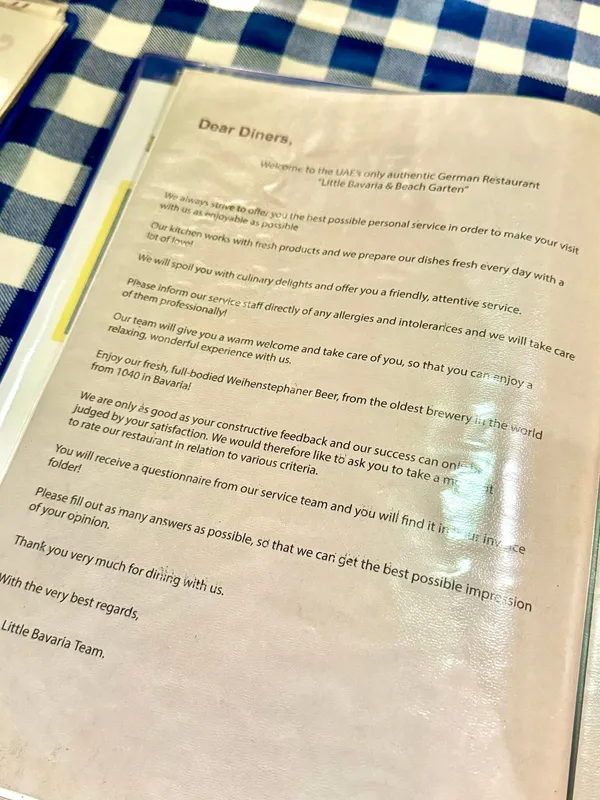 Dear Diners,
Welcome to the UAE's only authentic German Restaurant
"Little Bavaria & Beach Garten"
We always strive to offer you the best possible personal service in order to make your visit
with us as enjoyable as possible
Our kitchen works with fresh products and we prepare our dishes fresh every day with a
lot of love!
We will spoil you with culinary delights and offer you a friendly, attentive service.
Please inform our service staff directly of any allergies and intolerances and we will take care
of them professionally!
Our team will give you a warm welcome and take care of you, so that you can enjoy a
relaxing, wonderful experience with us.
Enjoy our fresh, full-bodied Weihenstephaner Beer, from the oldest brewery in the world
from 1040 in Bavaria!
We are only as good as your constructive feedback and our success can only
judged by your satisfaction. We would therefore like to ask you to take a
to rate our restaurant in relation to various criteria.
You will receive a questionnaire from our service team and you will find it in your invoice
folder!
Please fill out as many answers as possible, so that we can get the best possible impression
of your opinion.
Thank you very much for dining with us.
With the very best regards,
Little Bavaria Team.